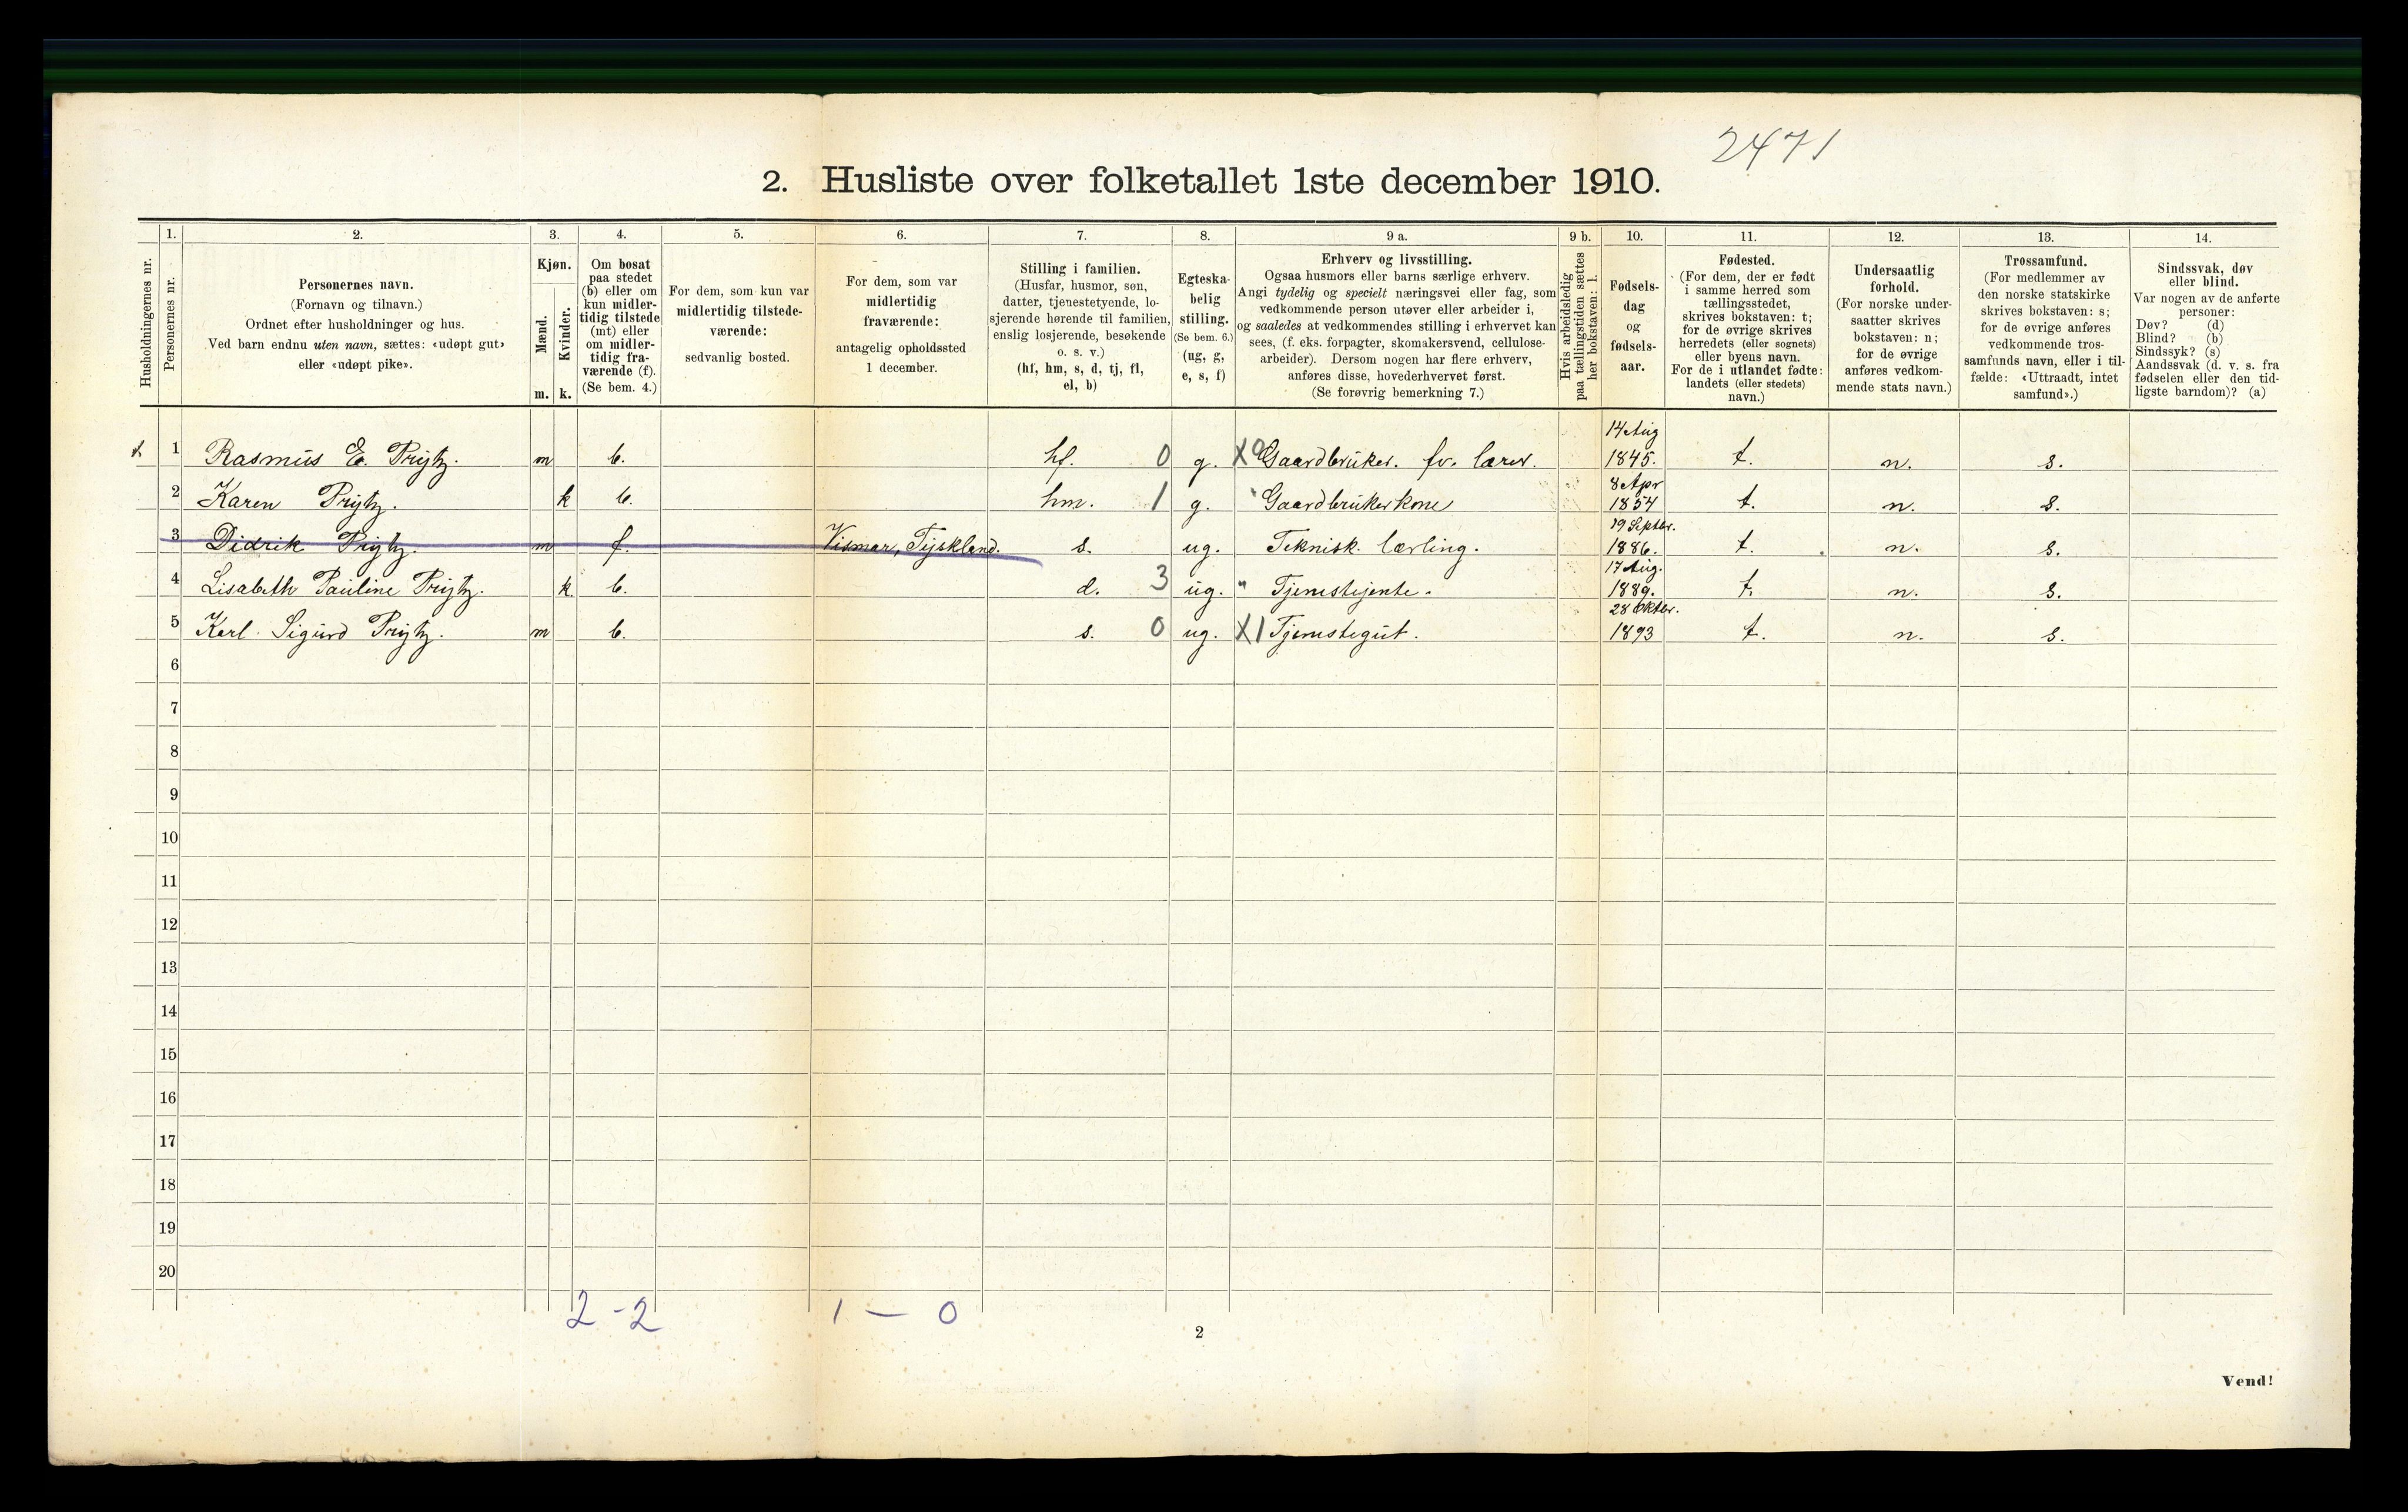 2471
2. Husliste over folketallet 1ste december 1910.
Husholdningernes nr.
1.
Personernes nr.
2.
Personernes navn.
(Fornavn og tilnavn.)
Ordnet efter husholdninger og hus.
Ved barn endnu uten navn, sættes: «udøpt gut»
eller «udøpt pike».
3.
Kjøn.
Mænd.
Kvinder.
m. k.
4.
Om bosat
paa stedet
(b) eller om
kun midler-
tidig tilstede
(mt) eller
om midler-
tidig fra-
værende (f).
(Se bem. 4.)
5.
For dem, som kun var
midlertidig tilstede-
værende:
sedvanlig bosted.
6.
For dem, som var
midlertidig
fraværende:
antagelig opholdssted
1 december.
7.
Stilling i familien.
(Husfar, husmor, søn,
datter, tjenestetyende, lo-
sjerende hørende til familien,
enslig losjerende, besøkende
o. s. v.)
(hf, hm, s, d, tj, fl,
el, b)
8.
Egteska-
belig
stilling.
(Se bem. 6.)
(ug, g,
e, s, f)
9 a.
Erhverv og livsstilling.
Ogsaa husmors eller barns særlige erhverv.
Angi tydelig og specielt næringsvei eller fag, som
vedkommende person utøver eller arbeider i,
og saaledes at vedkommendes stilling i erhvervet kan
sees, (f. eks. forpagter, skomakersvend, cellulose-
arbeider). Dersom nogen har flere erhverv,
anføres disse, hovederhvervet først.
(Se forøvrig bemerkning 7.)
9 b.
Hvis arbeidsledig
paa tællingstiden sættes
her bokstaven: l.
10.
Fødsels-
dag
og
fødsels-
aar.
11.
Fødested.
(For dem, der er født
i samme herred som
tællingsstedet,
skrives bokstaven: t;
for de øvrige skrives
herredets (eller sognets)
eller byens navn.
For de i utlandet fødte:
landets (eller stedets)
navn.)
12.
Undersaatlig
forhold.
(For norske under-
saatter skrives
bokstaven: n;
for de øvrige
anføres vedkom-
mende stats navn.)
13.
Trossamfund.
(For medlemmer av
den norske statskirke
skrives bokstaven: s;
for de øvrige anføres
vedkommende tros-
samfunds navn, eller i til-
fælde: «Uttraadt, intet
samfund».)
14.
Sindssvak, døv
eller blind.
Var nogen av de anførte
personer:
Døv? (d)
Blind? (b)
Sindssyk? (s)
Aandssvak (d. v. s. fra
fødselen eller den tid-
ligste barndom)? (a)
1 Rasmus E. Prytz. m b. hf. 0 g. X0 Gaardbruker. fv. lærer. 14 Aug 1845. t. n. s.
2 Karen Prytz. k b. hm. 1 g. " Gaardbrukerkone 8 Apr 1854 t. n. s.
3 Didrik Prytz. m f. Vismar, Tyskland. s. ug. Teknisk. lærling. 19 Septbr. 1886. t. n. s.
4 Lisabeth Pauline Prytz. k b. d. 3 ug. " Tjenestejente. 17 Aug. 1889. t. n. s.
5 Karl Sigurd Prytz. m b. s. 0 ug. X1 Tjenestegut. 28 Oktbr. 1893 t. n. s.
6
7
8
9
10
11
12
13
14
15
16
17
18
19
20
2 - 2 1 — 0
2
Vend!